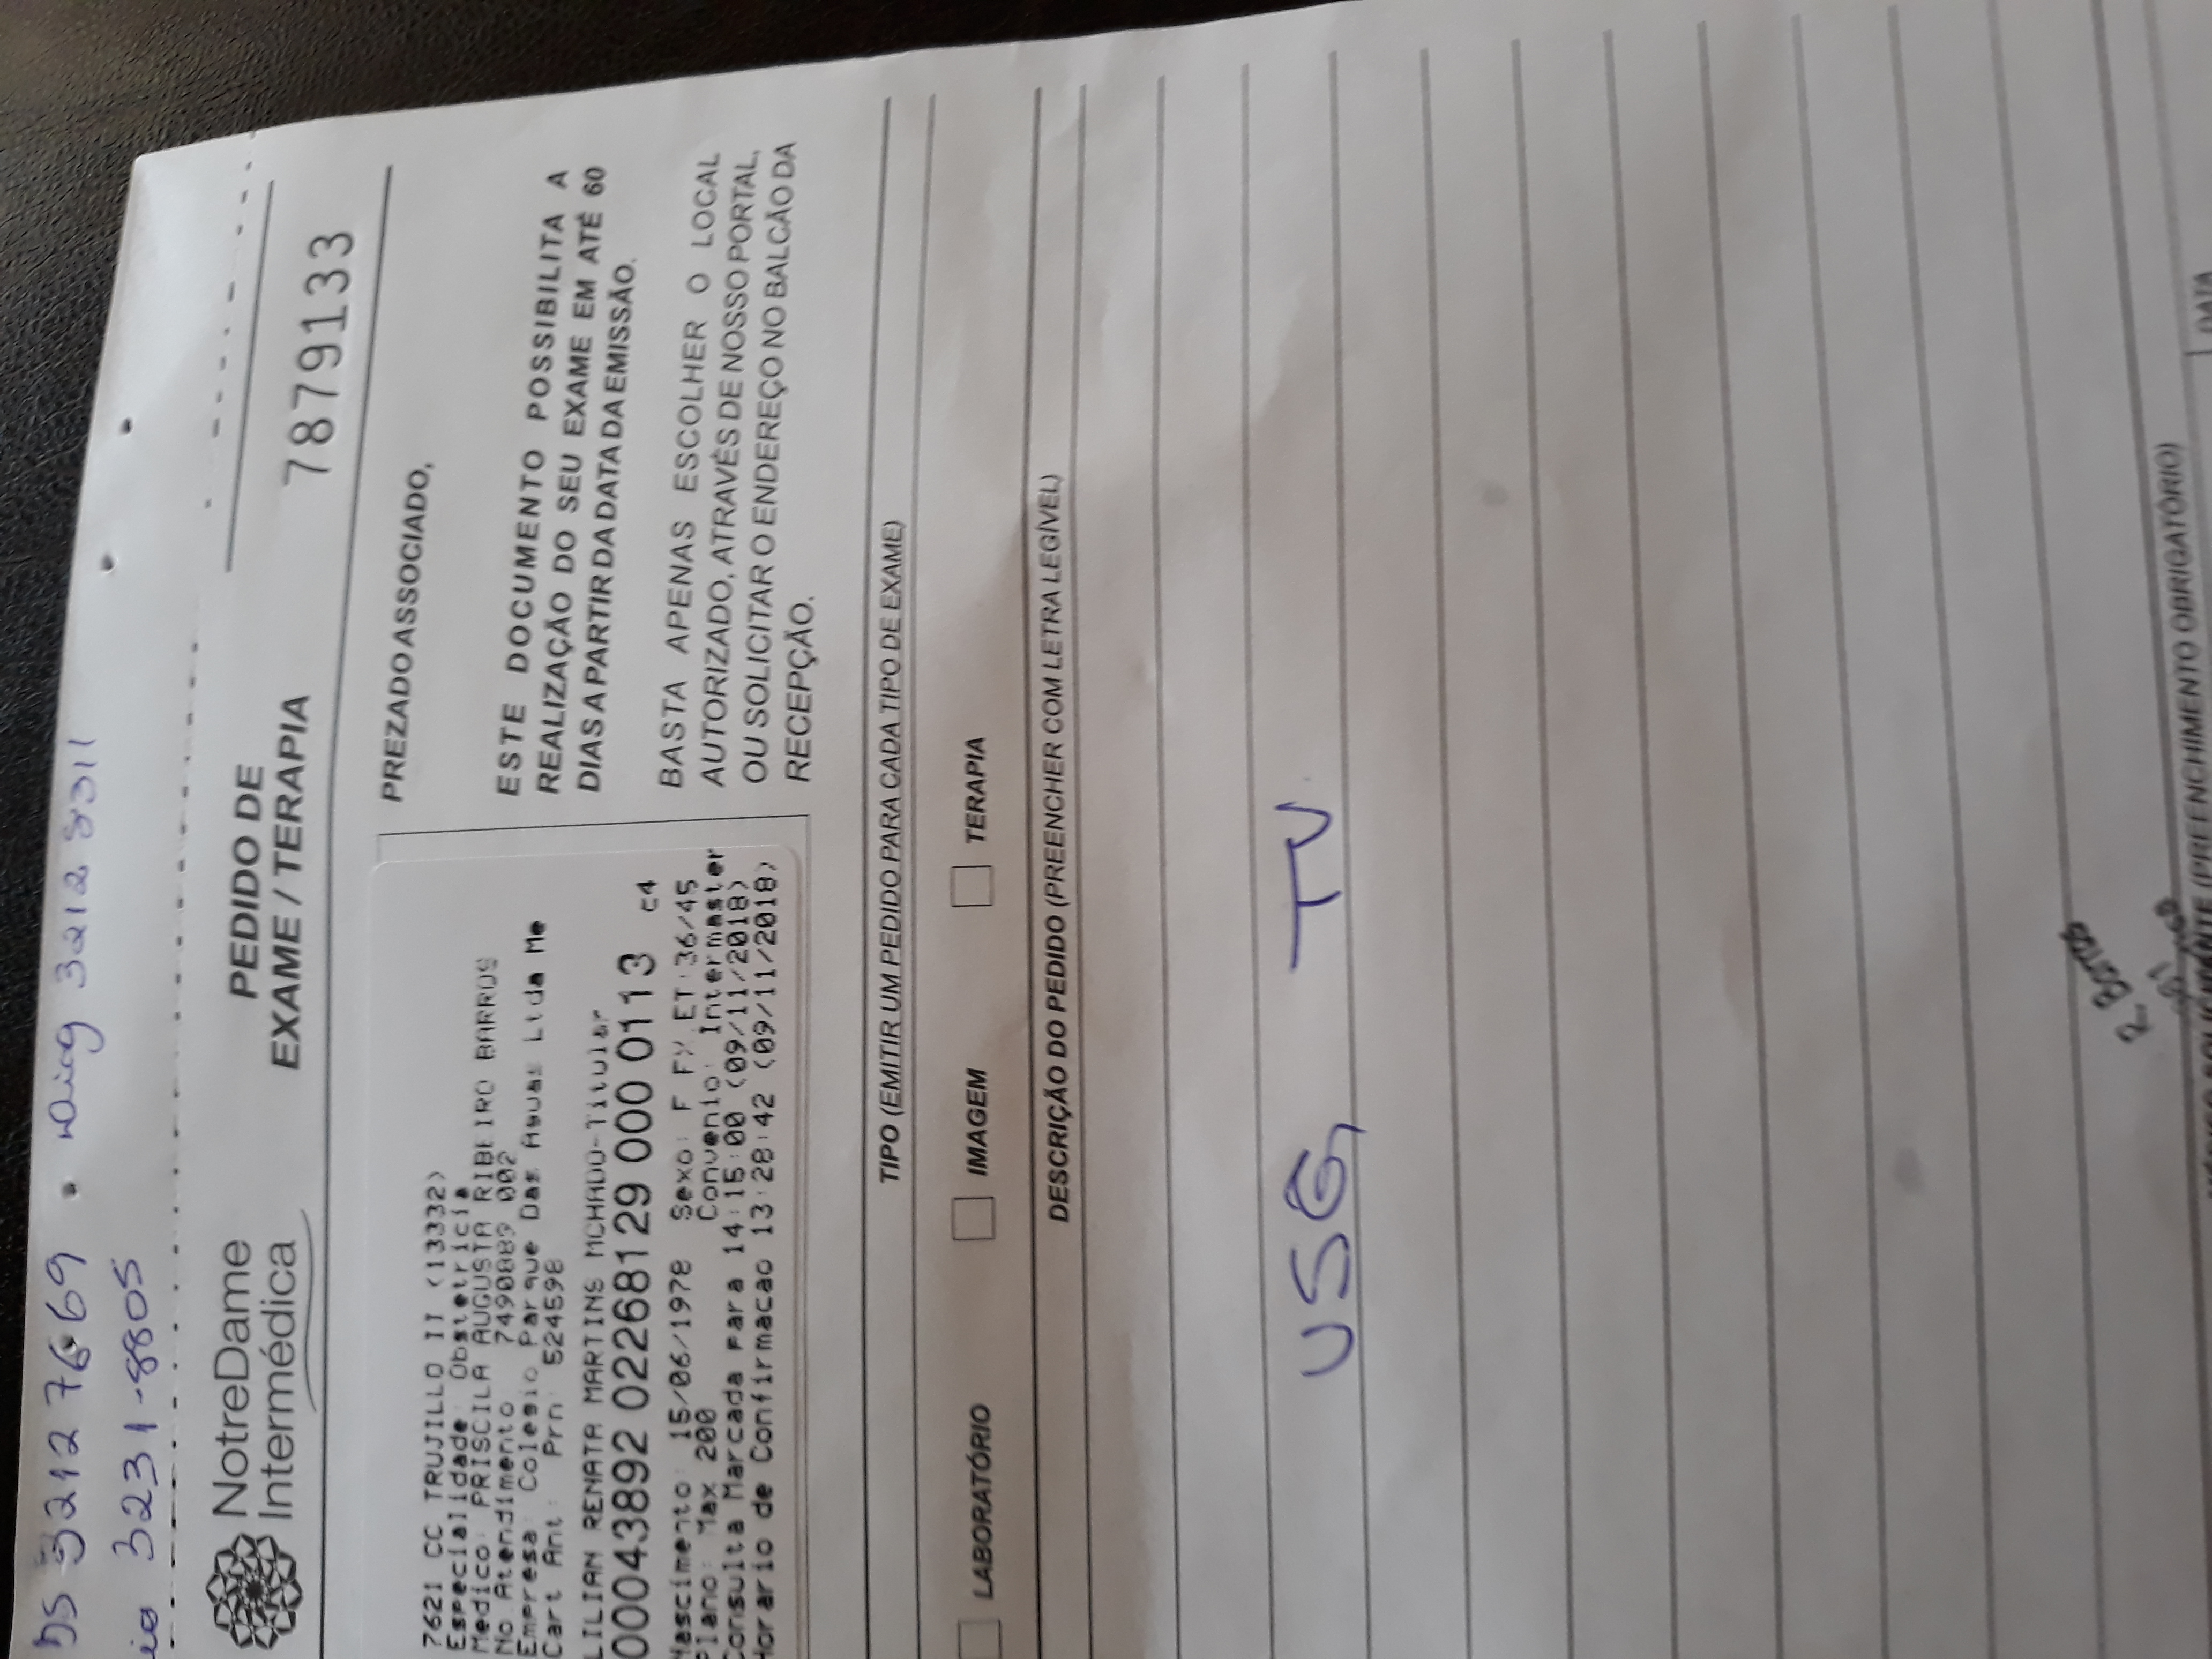 DS 3212 7669 · Diag 3212 8311
3231-8805
NotreDame
Intermédica
PEDIDO DE
EXAME / TERAPIA
7879133
7621 CC TRUJILLO II (13332)
Especialidade: Obstetricia
Medico: PRISCILA AUGUSTA RIBEIRO BARROS
No Atendimento 7490889 002
Empresa: Colegio Parque Das Aguas Ltda Me
Cart Ant: Prn: 524598
LILIAN RENATA MARTINS MCHADO-Titular
00043892 02268129 000 0113 c4
Nascimento: 15/06/1978 Sexo: F FX.ET:36/45
Plano: Max 200 Convenio: Intermaster
Consulta Marcada para 14:15:00 (09/11/2018)
Horario de Confirmacao 13:28:42 (09/11/2018)
PREZADO ASSOCIADO,
ESTE DOCUMENTO POSSIBILITA A
REALIZAÇÃO DO SEU EXAME EM ATÉ 60
DIAS A PARTIR DA DATA DA EMISSÃO.
BASTA APENAS ESCOLHER O LOCAL
AUTORIZADO, ATRAVÉS DE NOSSO PORTAL,
OU SOLICITAR O ENDEREÇO NO BALCÃO DA
RECEPÇÃO.
TIPO (EMITIR UM PEDIDO PARA CADA TIPO DE EXAME)
LABORATÓRIO IMAGEM TERAPIA
DESCRIÇÃO DO PEDIDO (PREENCHER COM LETRA LEGÍVEL)
USG TV
R. Barros
MÉDICO SOLICITANTE (PREENCHIMENTO OBRIGATÓRIO)
DATA